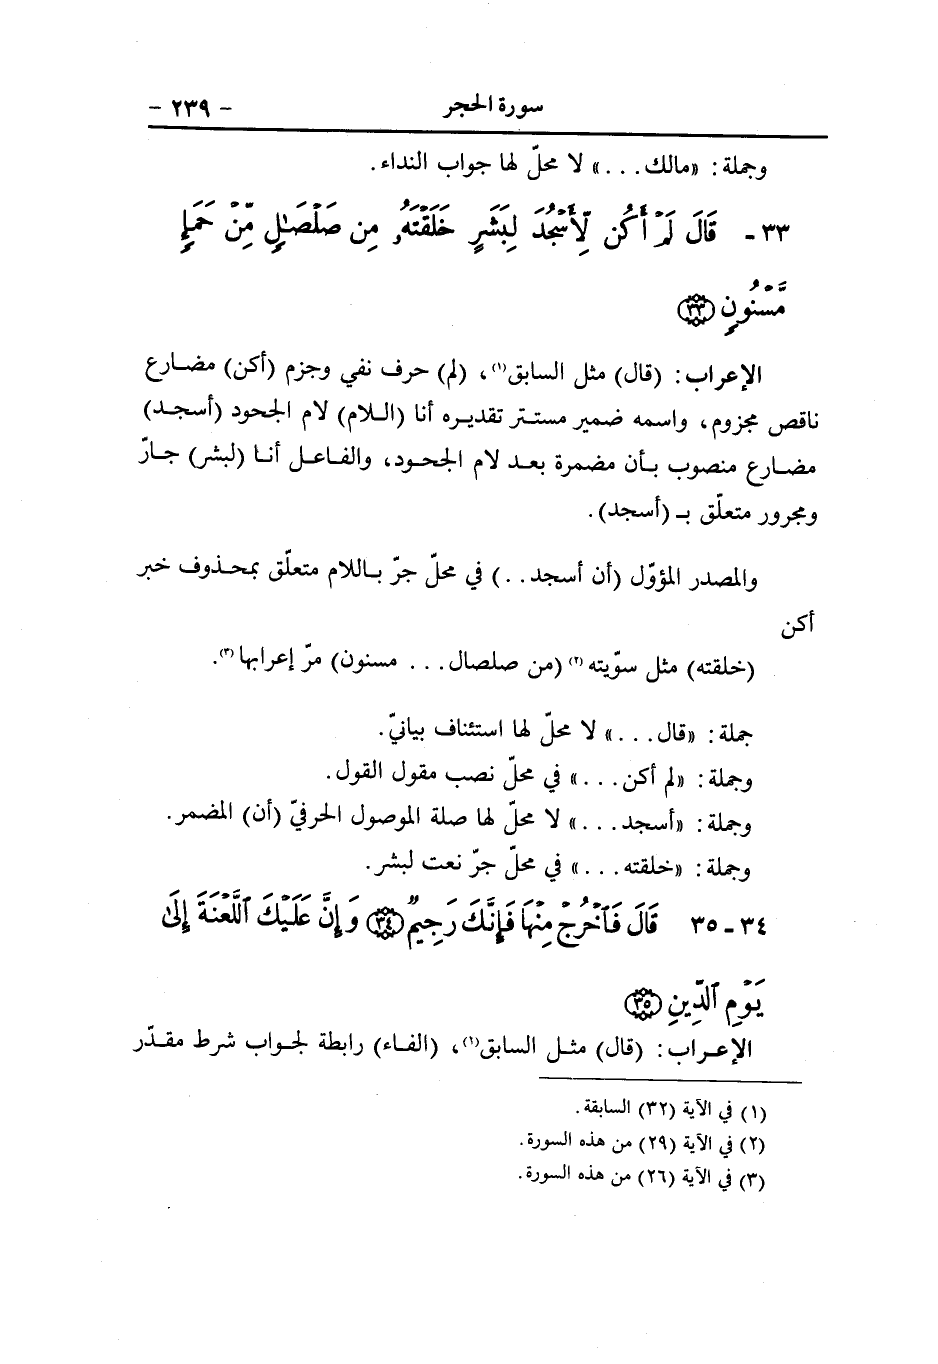 سورة الحجر - ٢٣٩ -
وجملة: «مالك...» لا محلّ لها جواب النداء.
٣٣ - قَالَ لَمْ أَكُن لِّأَسْجُدَ لِبَشَرٍ خَلَقْتَهُۥ مِن صَلْصَٰلٍ مِّنْ حَمَإٍ
مَّسْنُونٍ ﴿٣٣﴾
الإعراب: (قال) مثل السابق(١)، (لم) حرف نفي وجزم (أكن) مضارع
ناقص مجزوم، واسمه ضمير مستتر تقديره أنا (اللام) لام الجحود (أسجد)
مضارع منصوب بأن مضمرة بعد لام الجحود، والفاعل أنا (لبشر) جارّ
ومجرور متعلّق بـ (أسجد).
والمصدر المؤوّل (أن أسجد..) في محلّ جرّ باللام متعلق بمحذوف خبر
أكن
(خلقته) مثل سوّيته(٢) (من صلصال... مسنون) مرّ إعرابها(٣).
جملة: «قال...» لا محلّ لها استئناف بيانيّ.
وجملة: «لم أكن...» في محلّ نصب مقول القول.
وجملة: «أسجد...» لا محلّ لها صلة الموصول الحرفيّ (أن) المضمر.
وجملة: «خلقته...» في محلّ جرّ نعت لبشر.
٣٤ - ٣٥ قَالَ فَٱخْرُجْ مِنْهَا فَإِنَّكَ رَجِيمٌ ﴿٣٤﴾ وَإِنَّ عَلَيْكَ ٱللَّعْنَةَ إِلَىٰ
يَوْمِ ٱلدِّينِ ﴿٣٥﴾
الإعراب: (قال) مثل السابق(١)، (الفاء) رابطة لجواب شرط مقدّر
(١) في الآية (٣٢) السابقة.
(٢) في الآية (٢٩) من هذه السورة.
(٣) في الآية (٢٦) من هذه السورة.